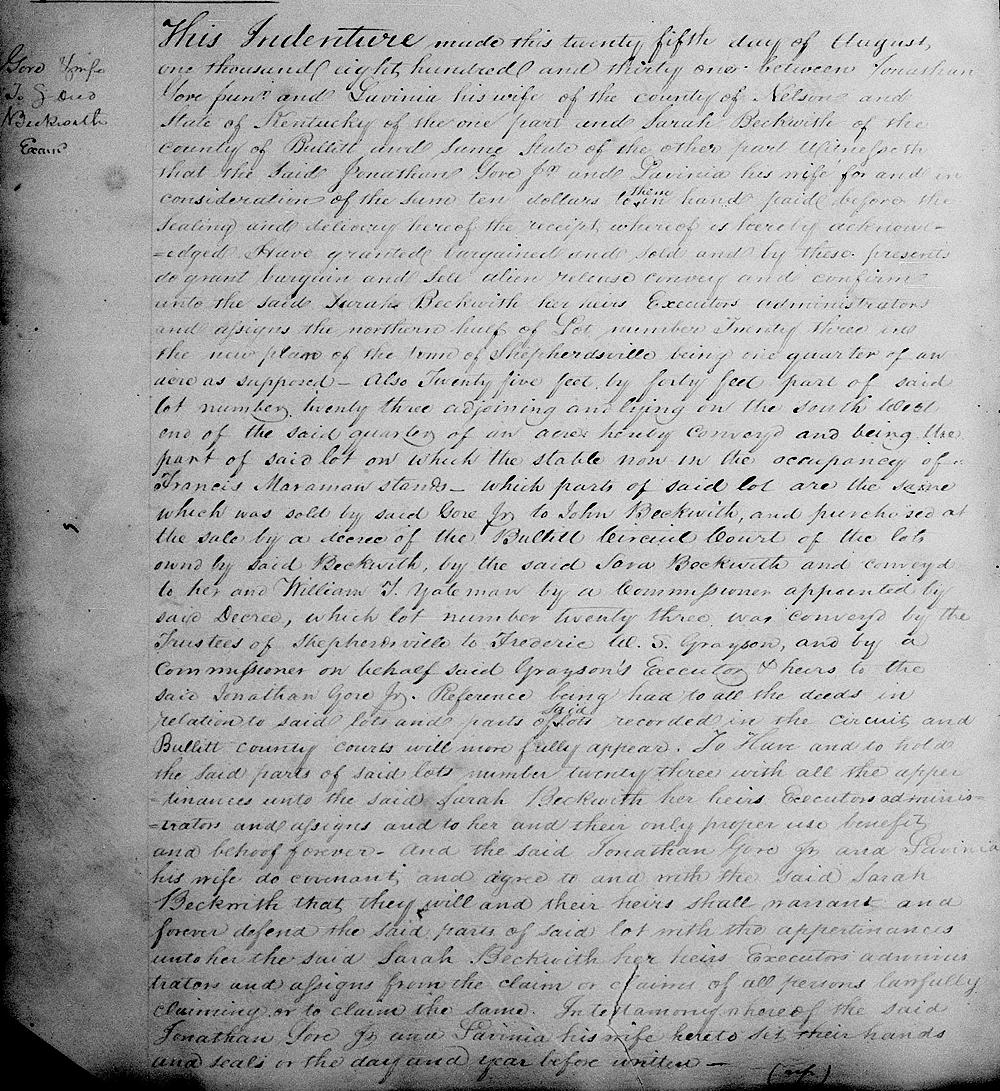 Gore & wife
To } Deed
Beckwith
Exam
This Indenture made this twenty fifth day of August,
one thousand eight hundred and thirty one between Jonathan
Gore junr and Lavinia his wife of the county of Nelson and
State of Kentucky of the one part and Sarah Beckwith of the
county of Bullitt and same State of the other part Witnesseth
that the said Jonathan Gore Jr and Lavinia his wife for and in
consideration of the sum ten dollars to them in hand paid before the
sealing and delivery hereof the receipt whereof is hereby acknowl-
=edged Have granted bargained and sold and by these presents
do grant bargain and sell alien release convey and confirm
unto the said Sarah Beckwith her heirs Executors administrators
and assigns the northern half of Lot number Twenty three in
the new plan of the town of Shepherdsville being one quarter of an
acre as supposed - Also Twenty five feet by forty feet part of said
lot number twenty three adjoining and lying on the south West
end of the said quarter of an acre hereby conveyd and being the
part of said lot on which the stable now in the occupancy of
Francis Maraman stands - which parts of said lot are the same
which was sold by said Gore Jr to John Beckwith, and purchased at
the sale by a decree of the Bullitt Circuit Court of the lots
ownd by said Beckwith, by the said Sara Beckwith and conveyd
to her and William T. Yateman by a Commissioner appointed by
said Decree, which lot number twenty three was conveyd by the
Trustees of Shepherdsville to Frederic W. S. Grayson, and by a
Commissioner on behalf said Grayson's Executor & heirs to the
said Jonathan Gore Jr. Reference being had to all the deeds in
relation to said lots and parts of said lots recorded in the circuit and
Bullitt county courts will more fully appear. To Have and to hold
the said parts of said lots number twenty three with all the apper
=tinances unto the said Sarah Beckwith her heirs Executors adminis=
=trators and assigns and to her and their only proper use benefit
and behoof forever - And the said Jonathan Gore Jr and Lavinia
his wife do covenant and agree to and with the said Sarah
Beckwith that they will and their heirs shall warrant and
forever defend the said parts of said lot with the appertinances
unto her the said Sarah Beckwith her heirs Executors adminis
trators and assigns from the claim or claims of all persons lawfully
claiming or to claim the same. In testamony whereof the said
Jonathan Gore Jr and Lavinia his wife hereto set their hands
and seals on the day and year before written -